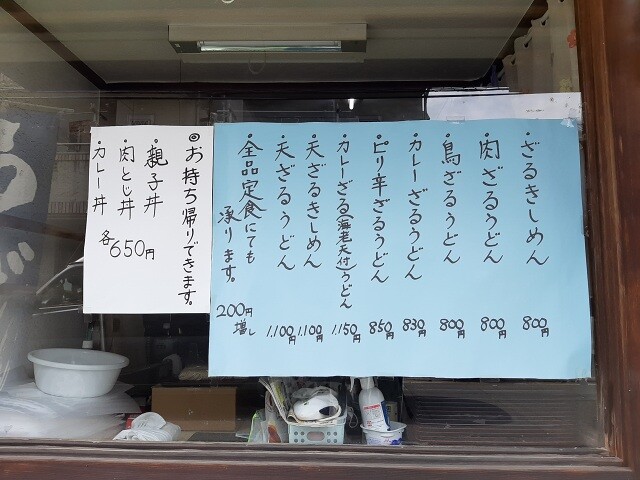 ・ざるきしめん 800円
・肉ざるうどん 800円
・鳥ざるうどん 800円
・カレーざるうどん 830円
・ピリ辛ざるうどん 850円
・カレーざる(海老天付)うどん 1,150円
・天ざるきしめん 1,100円
・天ざるうどん 1,100円
・全品定食にても
承ります。 200円増し
◎お持ち帰りできます。
・親子丼
・肉とじ丼
・カレー丼
各650円